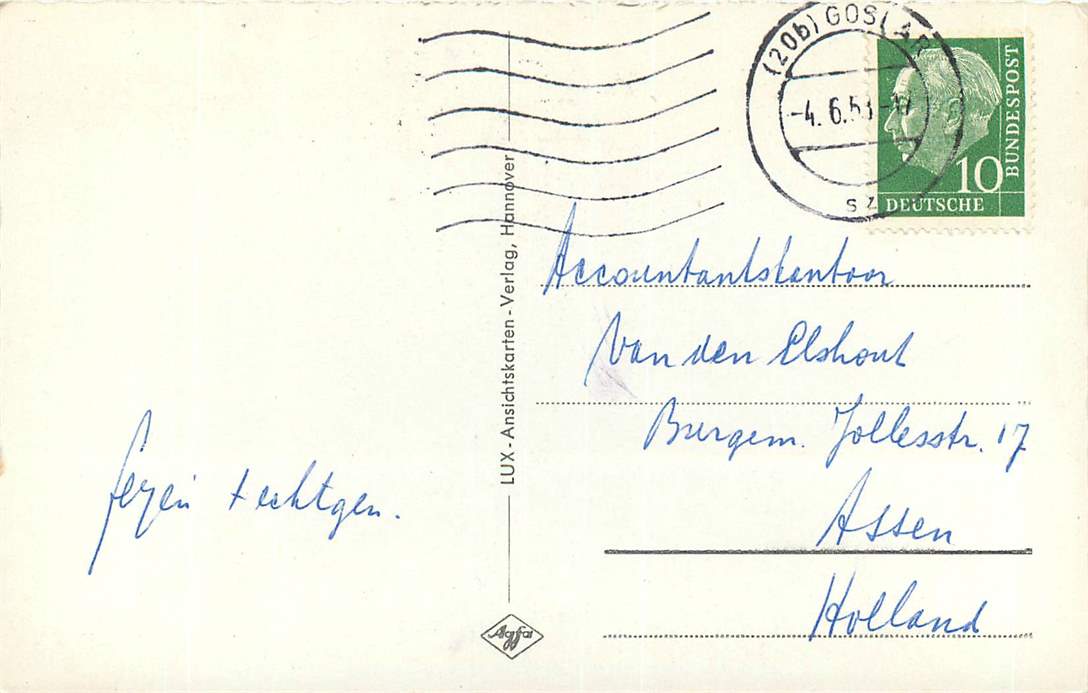 (20b) GOSLAR
-4. 6.5 -17
sz
10
BUNDESPOST
DEUTSCHE
Accountantskantoor
Van den Elshout
Burgem. Jollesstr. 17
Assen
Holland
LUX - Ansichtskarten - Verlag, Hannover
Agfa